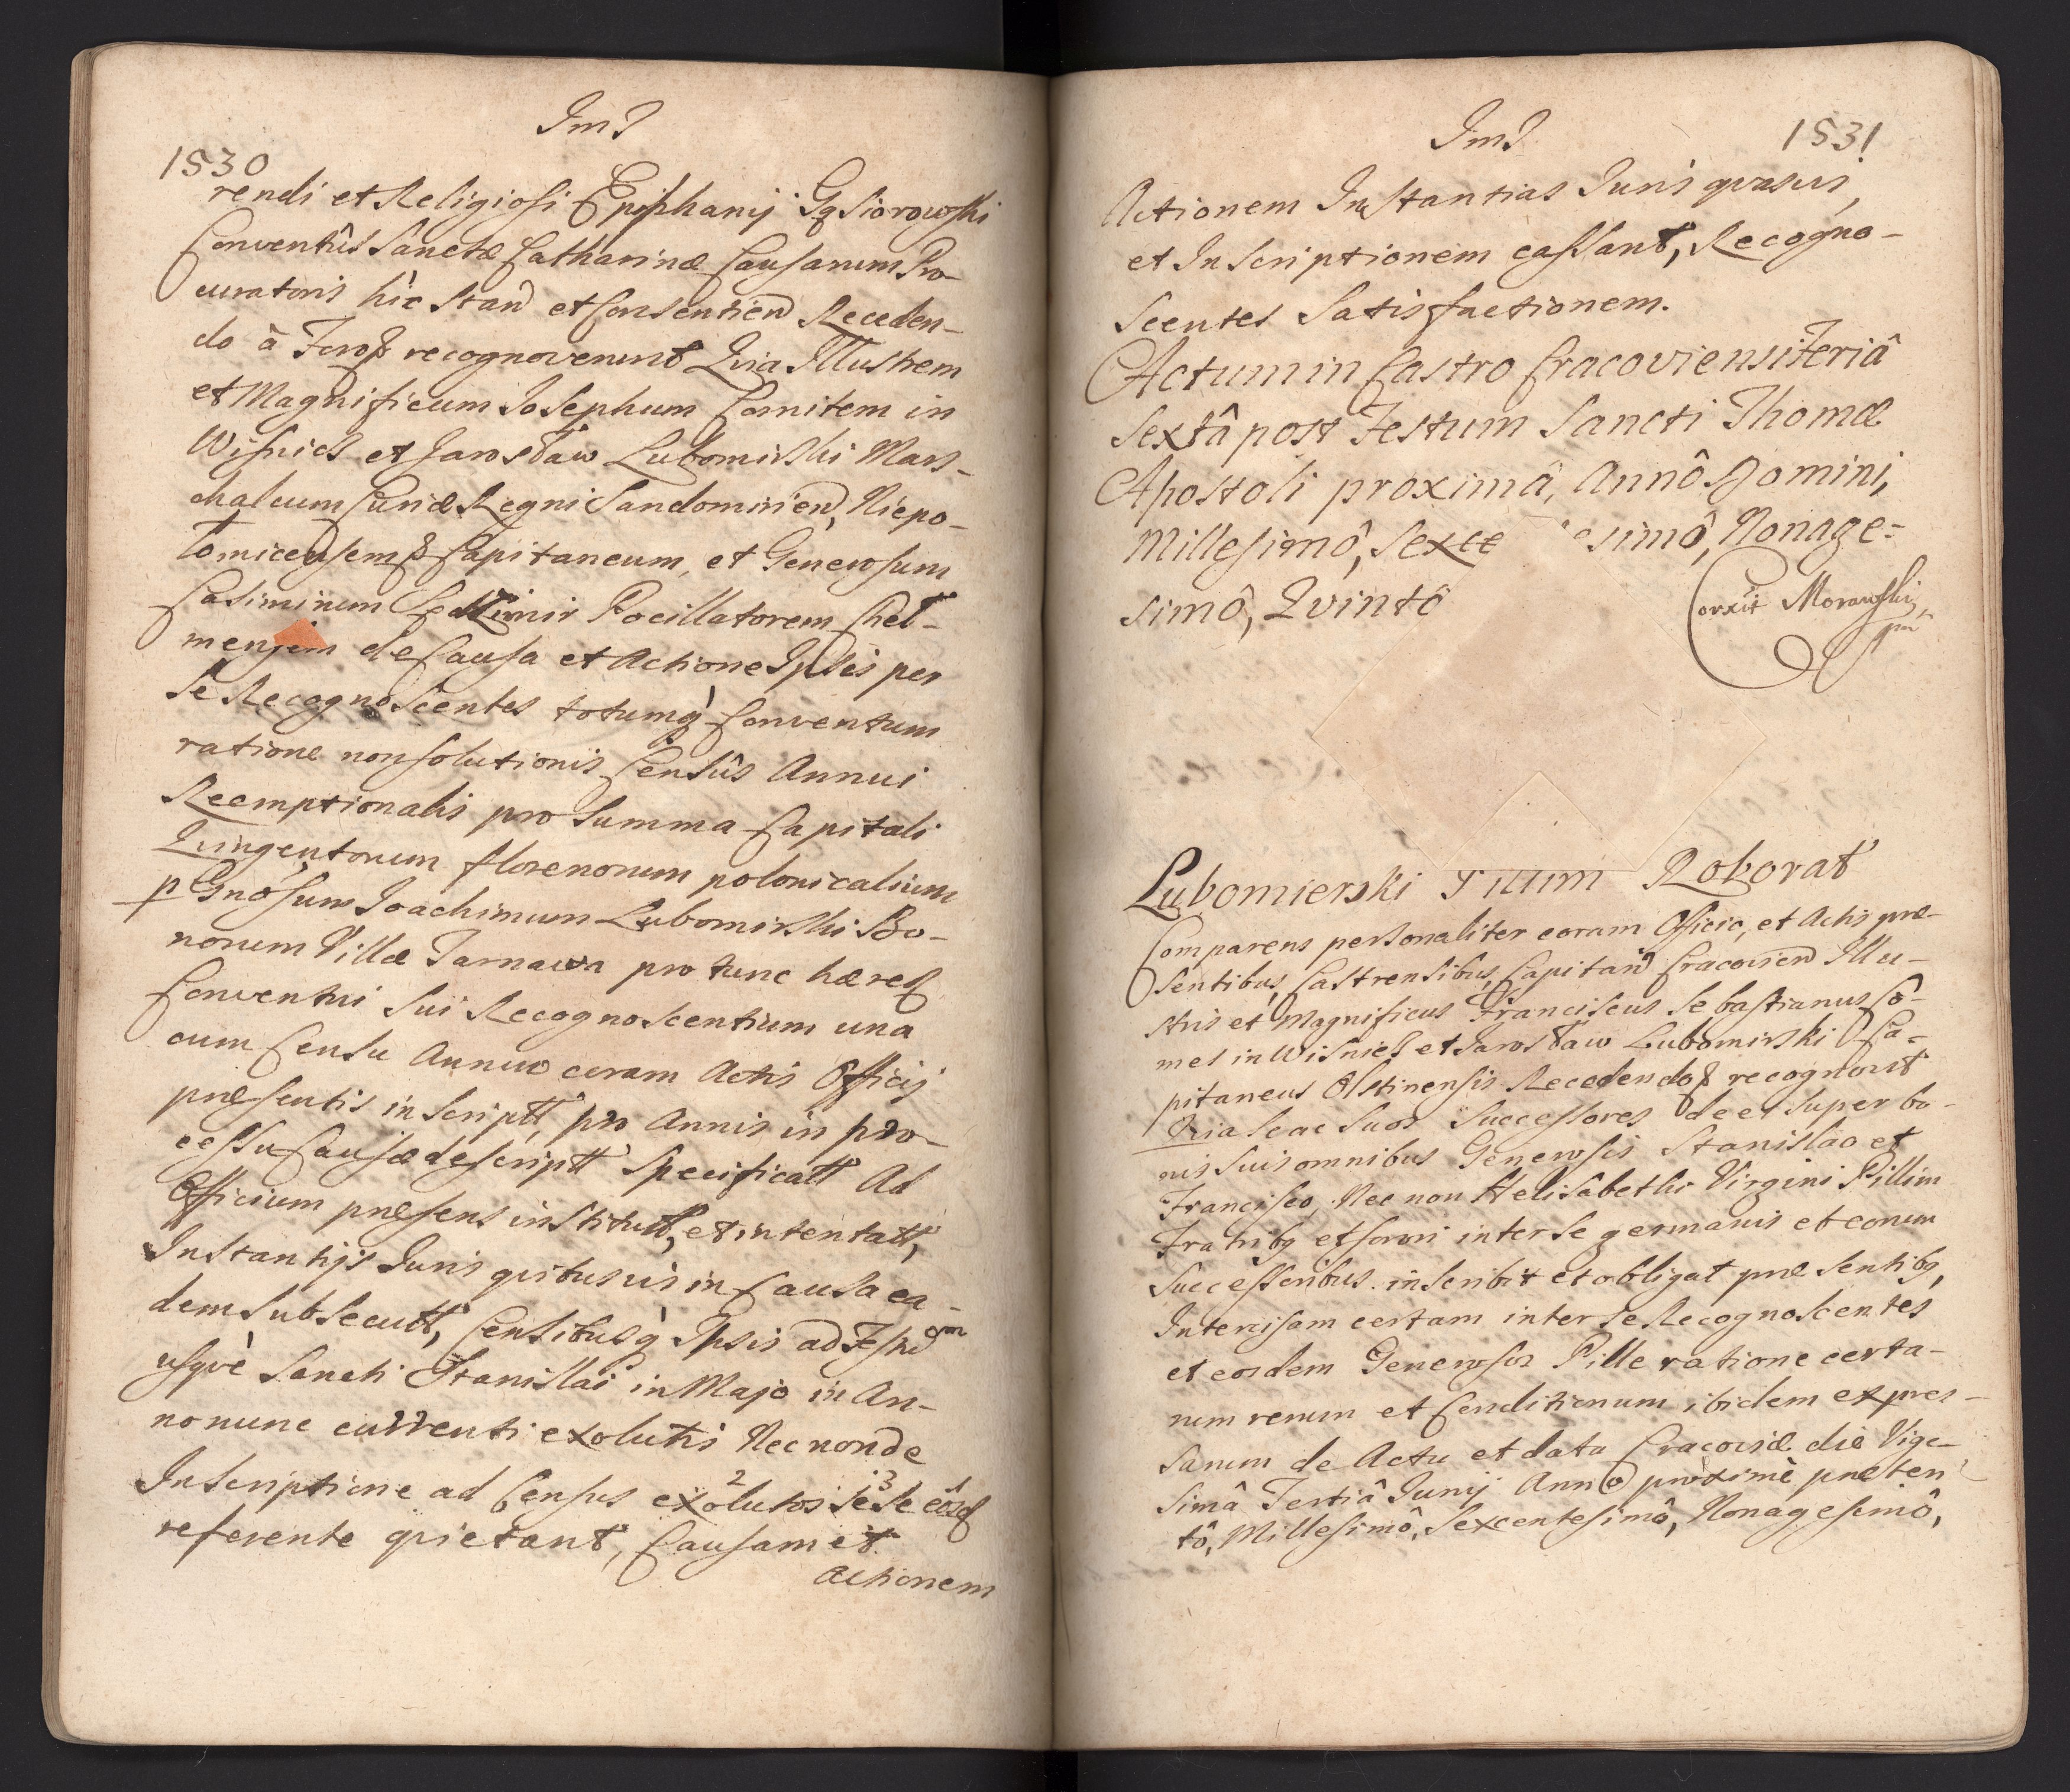 1530
ImJ
rendi et Religiosi Epiphanij Gąsiorowski
Conventûs Sanctæ Catharinæ Causarum Pro-
curatoris hîc stan et Consentien Receden-
do à Foro recognoverunt Quia Illustrem
et Magnificum Josephum Comitem in
Wisnicz et Jarosław Lubomirski Mars-
chalcum Curiæ Regni Sandomirien, Niepo-
łomicensem Capitaneum, et Generosum
Casimirum Pocillatorem Chel-
mensem de Causa et Actione Ipsis per
se Recognoscentes totumq Conventum
ratione non solutionis Censûs Annui
Reemptionalis pro Summa Capitali
Quingentorum florenorum polonicalium
p Gnosum Joachimum Lubomirski Bo-
norum Villæ Tarnawa pro tunc hæred
Conventui Sui Recognoscentium una
cum Censu Annuo coram Actis Officij
præsentis inscriptt, pro Annis in pro-
cessu Causæ descriptt specificatt Ad
Officium præsens institutt, et intentatt,
Instantijs Juris quibusvis in Causa ea-
dem subsecutt, Censibusq Ipsis ad Festu
usquè Sancti Stanislai in Majo in An-
no nunc currenti exolutis Nec non de
Inscriptione ad Census exolutos se se eosd
referente quietant, Causam et
Actionem
ImJ
1531
Actionem Instantias Juris quasvis,
et Inscriptionem cassant, Recogno-
scentes Satisfactionem.
Actum in Castro Cracoviensi Feriâ
Sextâ post Festum Sancti Thomæ
Apostoli proximâ, Annô Domini,
Millesimô, Sexce esimô, Nonage-
simô, Quintô
Corxit Morawski
Lubomierski Pillim Roborat
Comparens personaliter coram Officio, et Actis præ-
sentibus, Castrensibus, Capitan Cracovien Illu-
stris et Magnificus Franciscus Sebastianus Co-
mes in Wisnicz et Jarosław Lubomirski Ca-
pitaneus Olstinensis Recedendo recognovit
Quia se ac Suos Successores de et super bo-
nis Suis omnibus Generosis Stanislao et
Francisco, Nec non Helisabethi Virgini Pillim
Fratribq et sorori inter se germanis et eorum
Successoribus inscribit et obligat præsentibq,
Intercisam certam inter se Recognoscentes
et eosdem Generosos Pille ratione certa-
rum rerum et Conditionum ibidem expres-
sarum de Actu et data Cracoviæ die Vige-
simâ Tertiâ Junij Anno proximè præteri-
tô, Millesimô, Sexcentesimô, Nonagesimô,